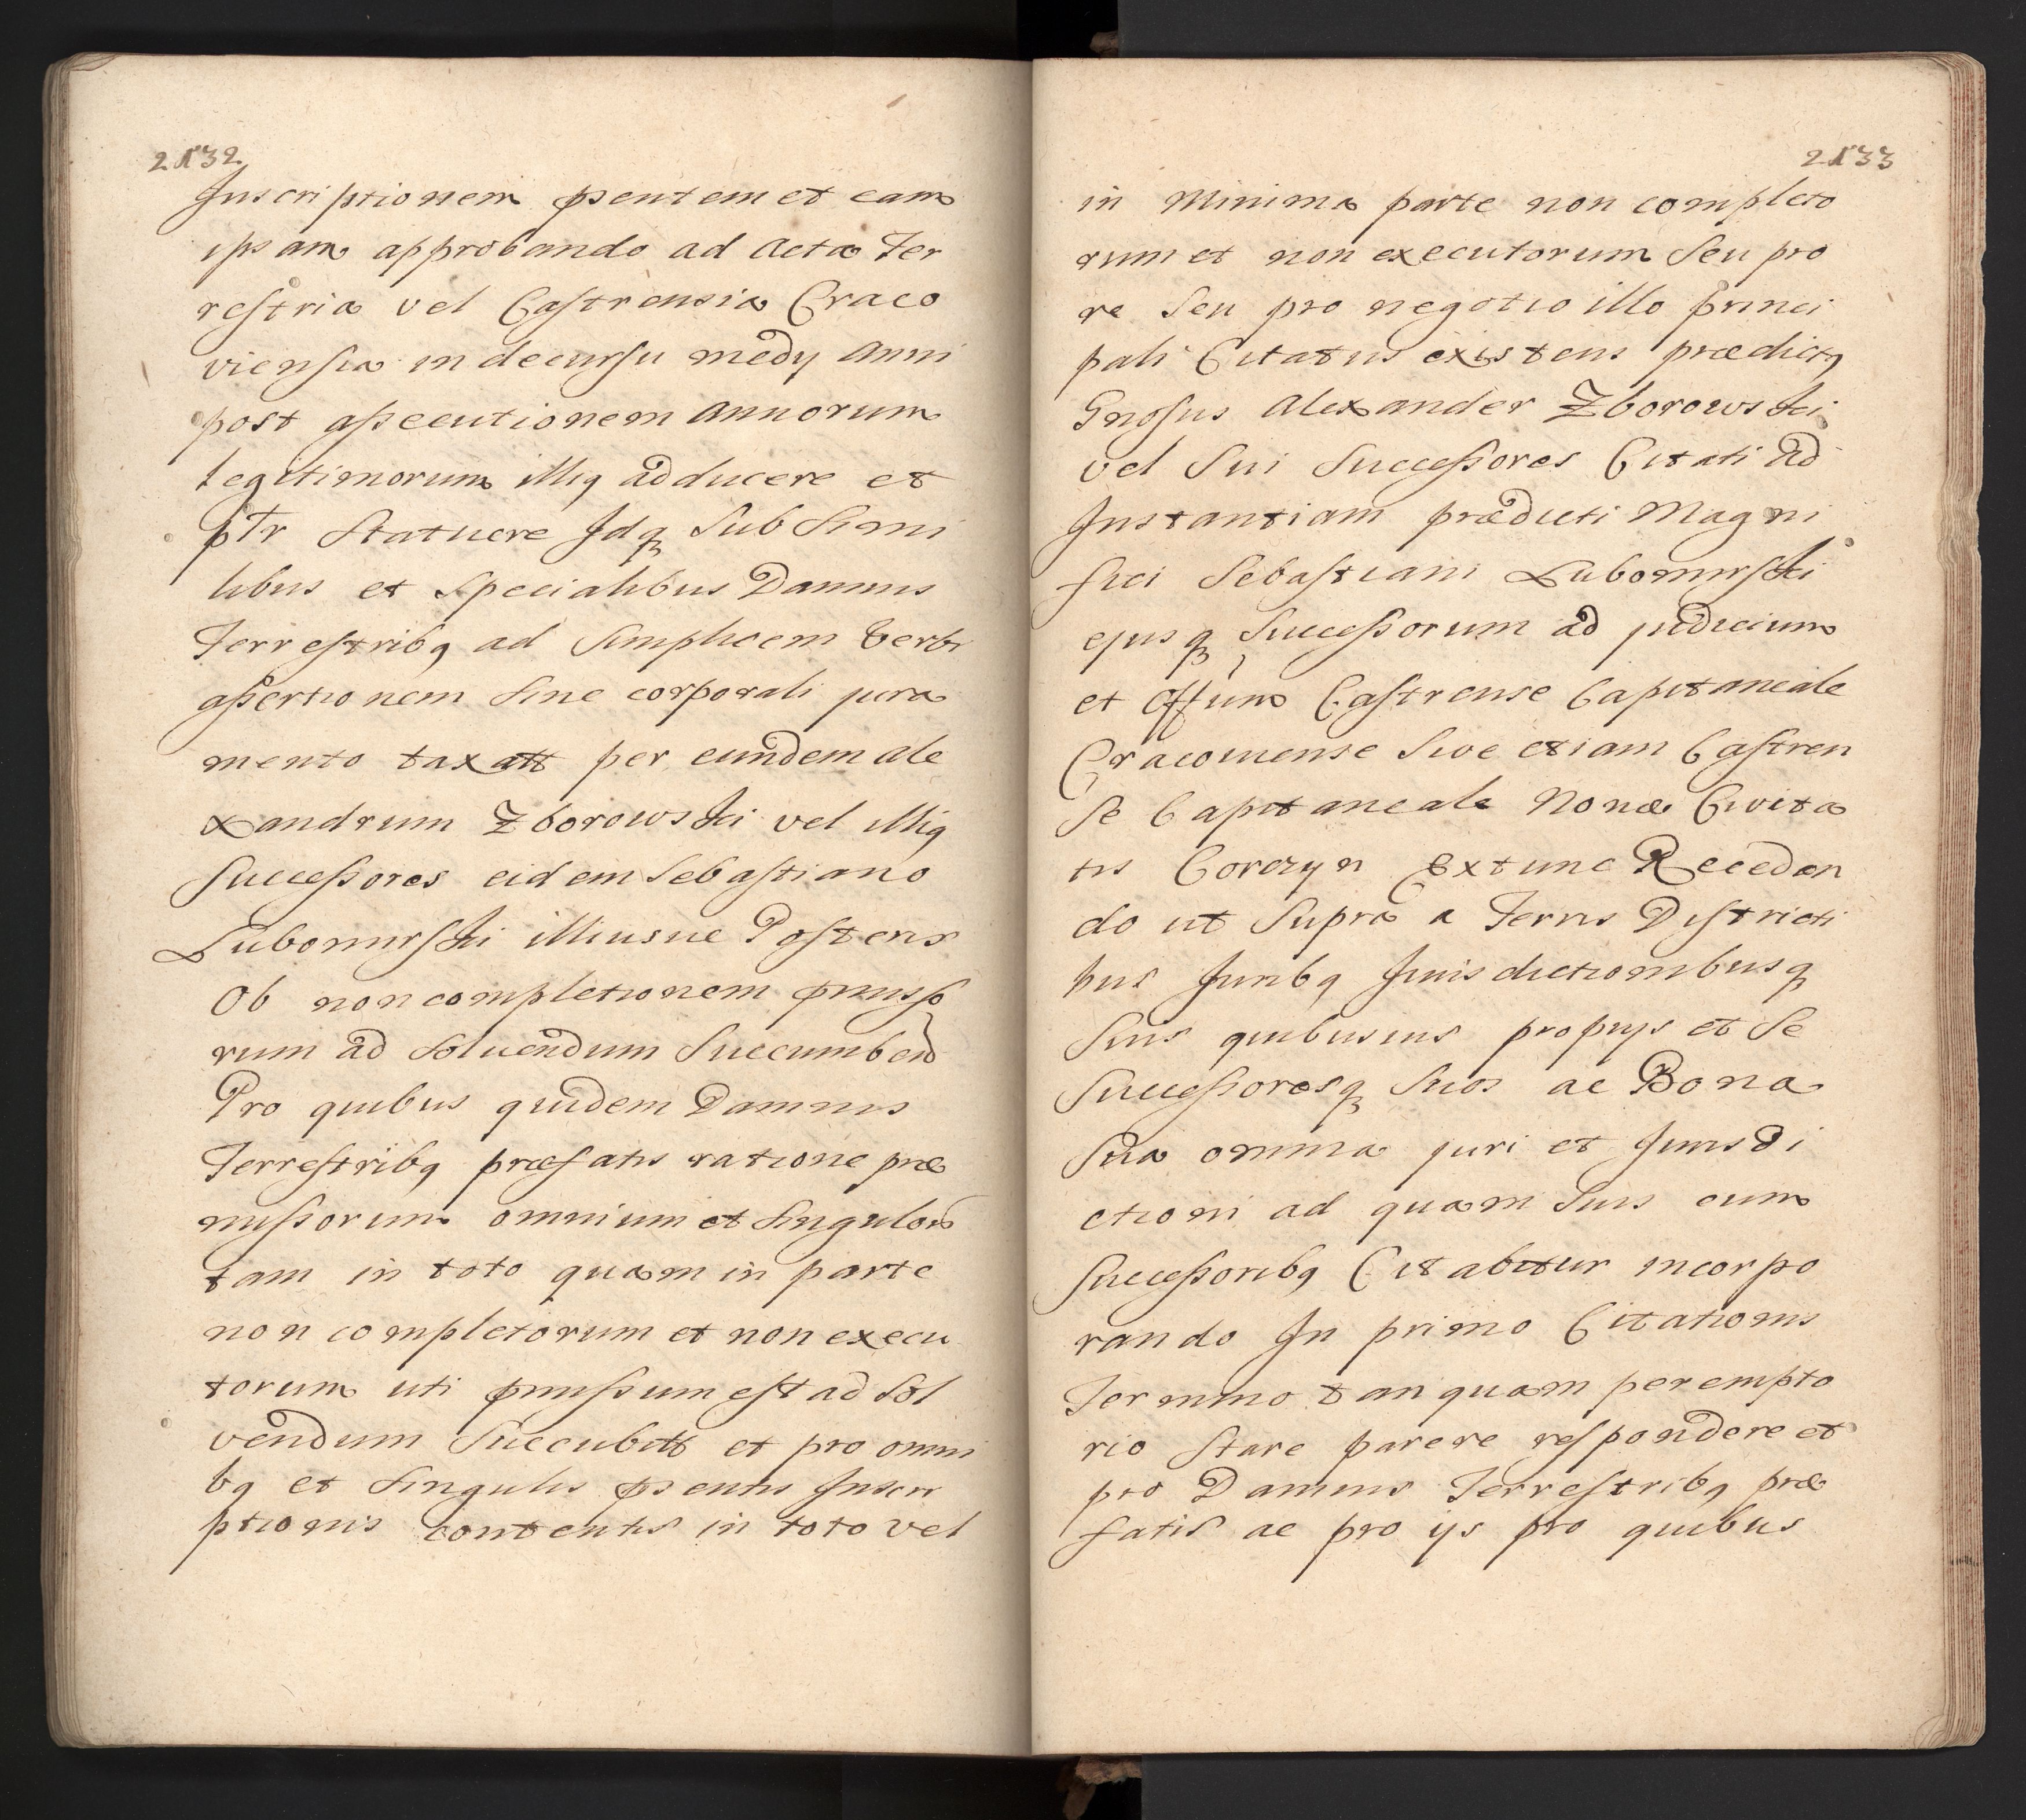 2132
Inscriptionem pſentem et eam
ipsam approbando ad Acta Ter
reſtria vel Caſtrensia Craco
vienſia in decurſu medy Anni
post aſsecutionem Annorum
legitimorum illiq adducere et
ptr Statuere Idq Sub Simi
libus et Specialibus Damnis
Terreſtribq ad Simplicem Verbi
aſsertionem Sine corporali jura
mento taxatt per eundem Ale
xandrum Zborowski vel illiq
Succeſsores eidem Sebaſtiano
Lubomirſki illiusue Poſteris
Ob non completionem pmiſso
rum ad Soluendum Succumbend
Pro quibus quidem Damnis
Terreſtribq præfatis ratione præ
miſsorum omnium et Singulor
tam in toto quam in parte
non completorum et non execu
torum uti pmiſsum eſt ad Sol
vendum Succubitt et pro omni
bq et Singulis pſentis Inscri
ptionis contentis in toto vel
2133
in Minima parte non completo
rum et non executorum Seu pro
re Seu pro negotio illo princi
pali Citatus existens prædictq
Gnoſus Alexander Zborowski
vel Sui Succeſsores Citati ad
Instantiam prædicti Magni
fici Sebaſtiani Lubomirſki
ejusq Succeſsorum ad judicium
et Offum Caſtrense Capitaneale
Cracouiense Siue etiam Caſtren
Se Capitaneale Nouæ Civita
tis Corczyn Extunc Receden
do ut Supra a Terris Diſtricti
bus Juribq Jurisdictionibusq
Suis quibusuis proprys et Se
Succeſsoresq Suos ac Bona
Sua omnia juri et Jurisdi
ctioni ad quam Suis cum
Succeſsoribq Citabitur incorpo
rando In primo Citationis
Termino tanquam perempto
rio Stare parere reſpondere et
pro Damnis Terreſtribq præ
fatis ac pro ijs pro quibus